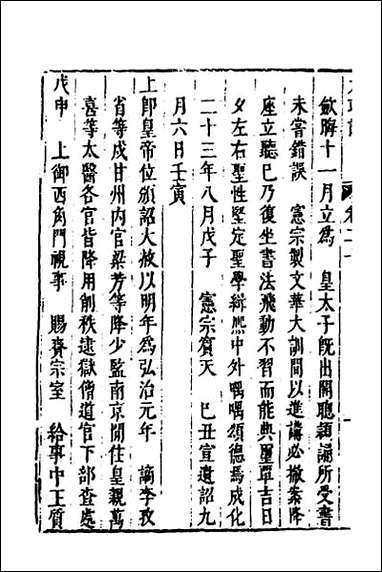 歛胸十一月立爲　皇太子旣出閣聰穎誦所受書
未嘗錯誤　憲宗製文華大訓間以進講必撤案降
座立聽已乃復坐書法飛動不習而能典璽覃吉日
夕左右聖性堅定聖學緝熈中外喁喁頌德焉成化
二十三年八月戊子　憲宗賓天　己丑宣遺詔九
月六日壬寅
上卽皇帝位頒詔大赦以明年爲弘治元年　謫李孜
省等戍甘州内官梁芳等降少監南京閒住皇親萬
喜等太醫各官皆降用削秩逮獄僧道官下部查處
戊申　上御西角門視事　賜賚宗室　給事中王質